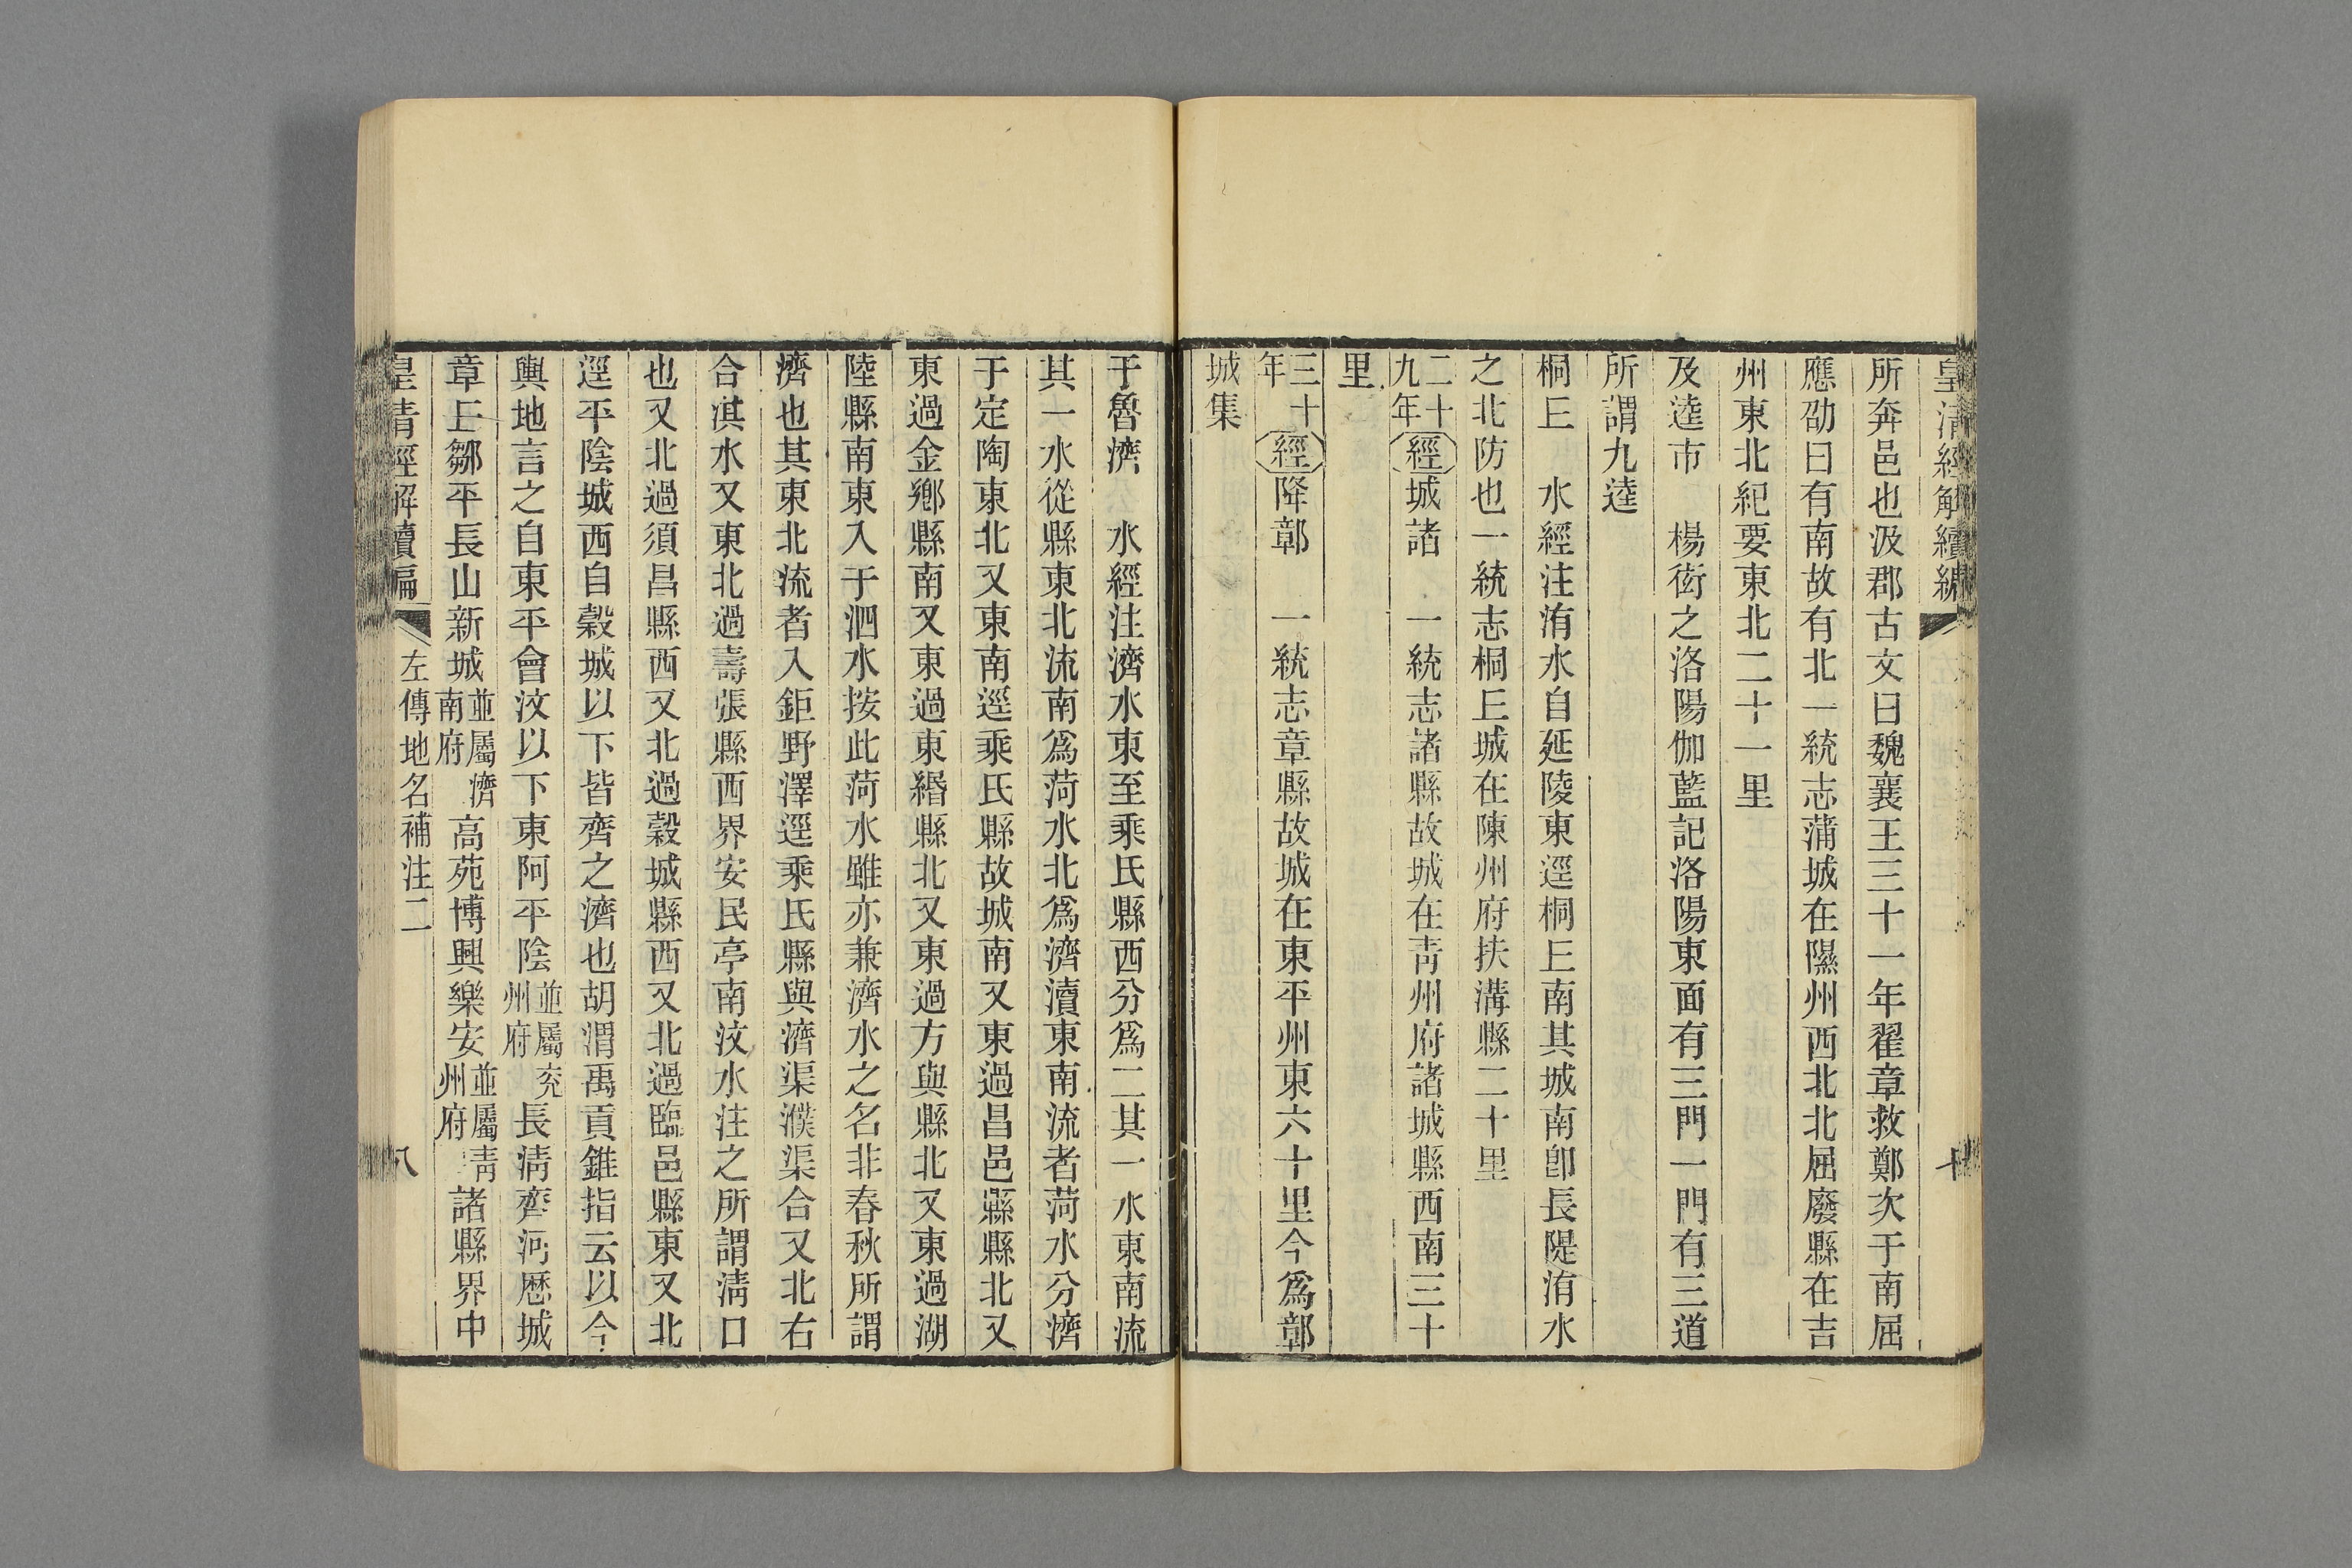 皇清經解續編
所奔邑也汲郡古文曰魏襄王三十一年翟章救鄭次于南屈
應劭曰有南故有北一統志蒲城在隰州西北北屈廢縣在吉
州東北紀要東北二十一里
及逵市　楊衒之洛陽伽藍記洛陽東面有三門一門有三道
所謂九逵
桐𠀉　水經注洧水自延陵東逕桐𠀉南其城南卽長隄洧水
之北防也一統志桐𠀉城在陳州府扶溝縣二十里
二十九年經城諸　一統志諸縣故城在靑州府諸城縣西南三十
里
三十年經降鄣　一統志章縣故城在東平州東六十里今爲鄣
城集
于魯濟　水經注濟水東至乘氏縣西分爲二其一水東南流
其一水從縣東北流南爲菏水北爲濟瀆東南流者菏水分濟
于定陶東北又東南逕乘氏縣故城南又東過昌邑縣北又
東過金鄕縣南又東過東緡縣北又東過方與縣北又東過湖
陸縣南東入于泗水按此菏水雖亦兼濟水之名非春秋所謂
濟也其東北流者入鉅野澤逕乘氏縣與濟渠濮渠合又北右
合淇水又東北過壽張縣西界安民亭南汶水注之所謂淸口
也又北過須昌縣西又北過穀城縣西又北過臨邑縣東又北
逕平陰城西自穀城以下皆齊之濟也胡渭禹貢錐指云以今
輿地言之自東平會汶以下東阿平陰並屬兗州府長淸齊河歷城
章𠀉鄒平長山新城並屬濟南府高苑博興樂安並屬靑州府諸縣界中
皇淸經解續編　左傳地名補注二　八